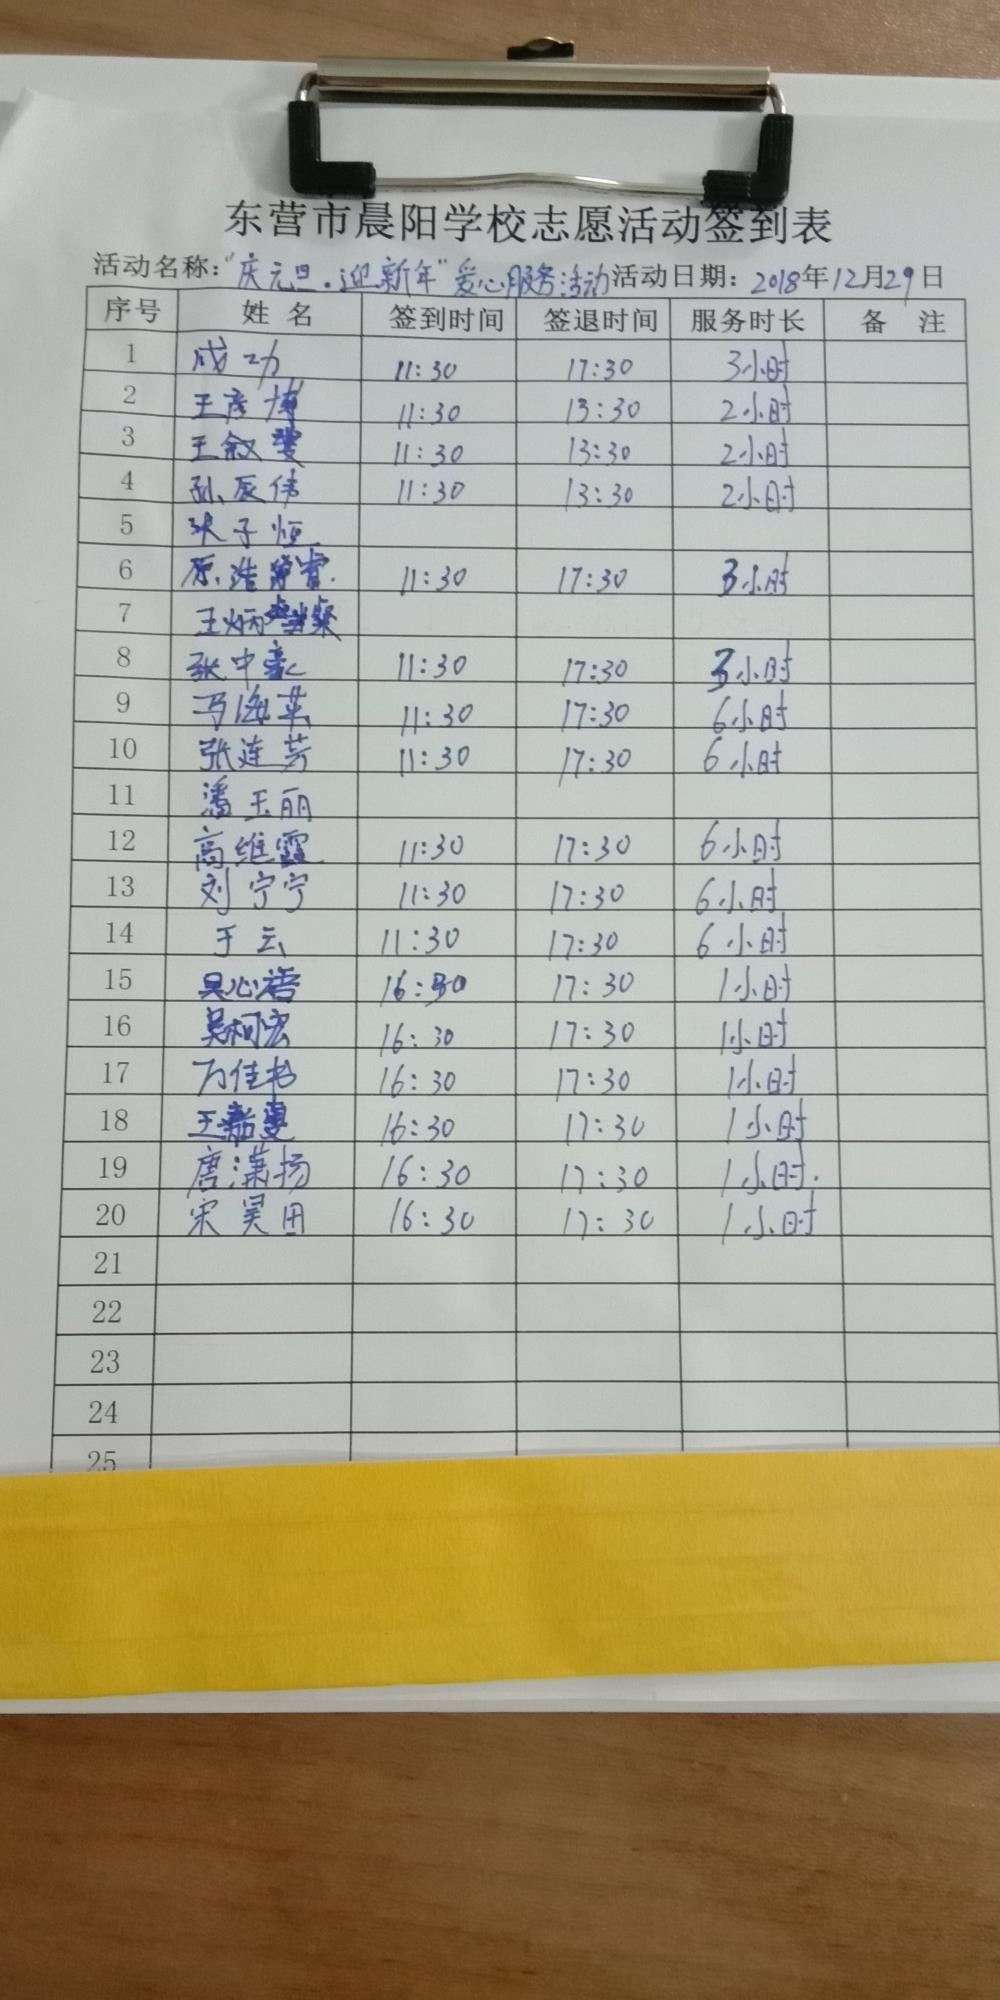 东营市晨阳学校志愿活动签到表
活动名称："庆元旦.迎新年"爱心服务活动 活动日期：2018年12月29日
序号 姓名 签到时间 签退时间 服务时长 备注
1 成功 11:30 17:30 3小时
2 王彦博 11:30 13:30 2小时
3 王叙 11:30 13:30 2小时
4 孙辰伟 11:30 13:30 2小时
5 张子恒
6 原浩 11:30 17:30 3小时
7 王炳
8 张中豪 11:30 17:30 3小时
9 马海英 11:30 17:30 6小时
10 张连芳 11:30 17:30 6小时
11 潘玉丽
12 高维霞 11:30 17:30 6小时
13 刘宁宁 11:30 17:30 6小时
14 于云 11:30 17:30 6小时
15 吴心语 16:30 17:30 1小时
16 吴柯宏 16:30 17:30 1小时
17 万佳书 16:30 17:30 1小时
18 王嘉 16:30 17:30 1小时
19 唐潇扬 16:30 17:30 1小时.
20 宋昊田 16:30 17:30 1小时
21
22
23
24
25